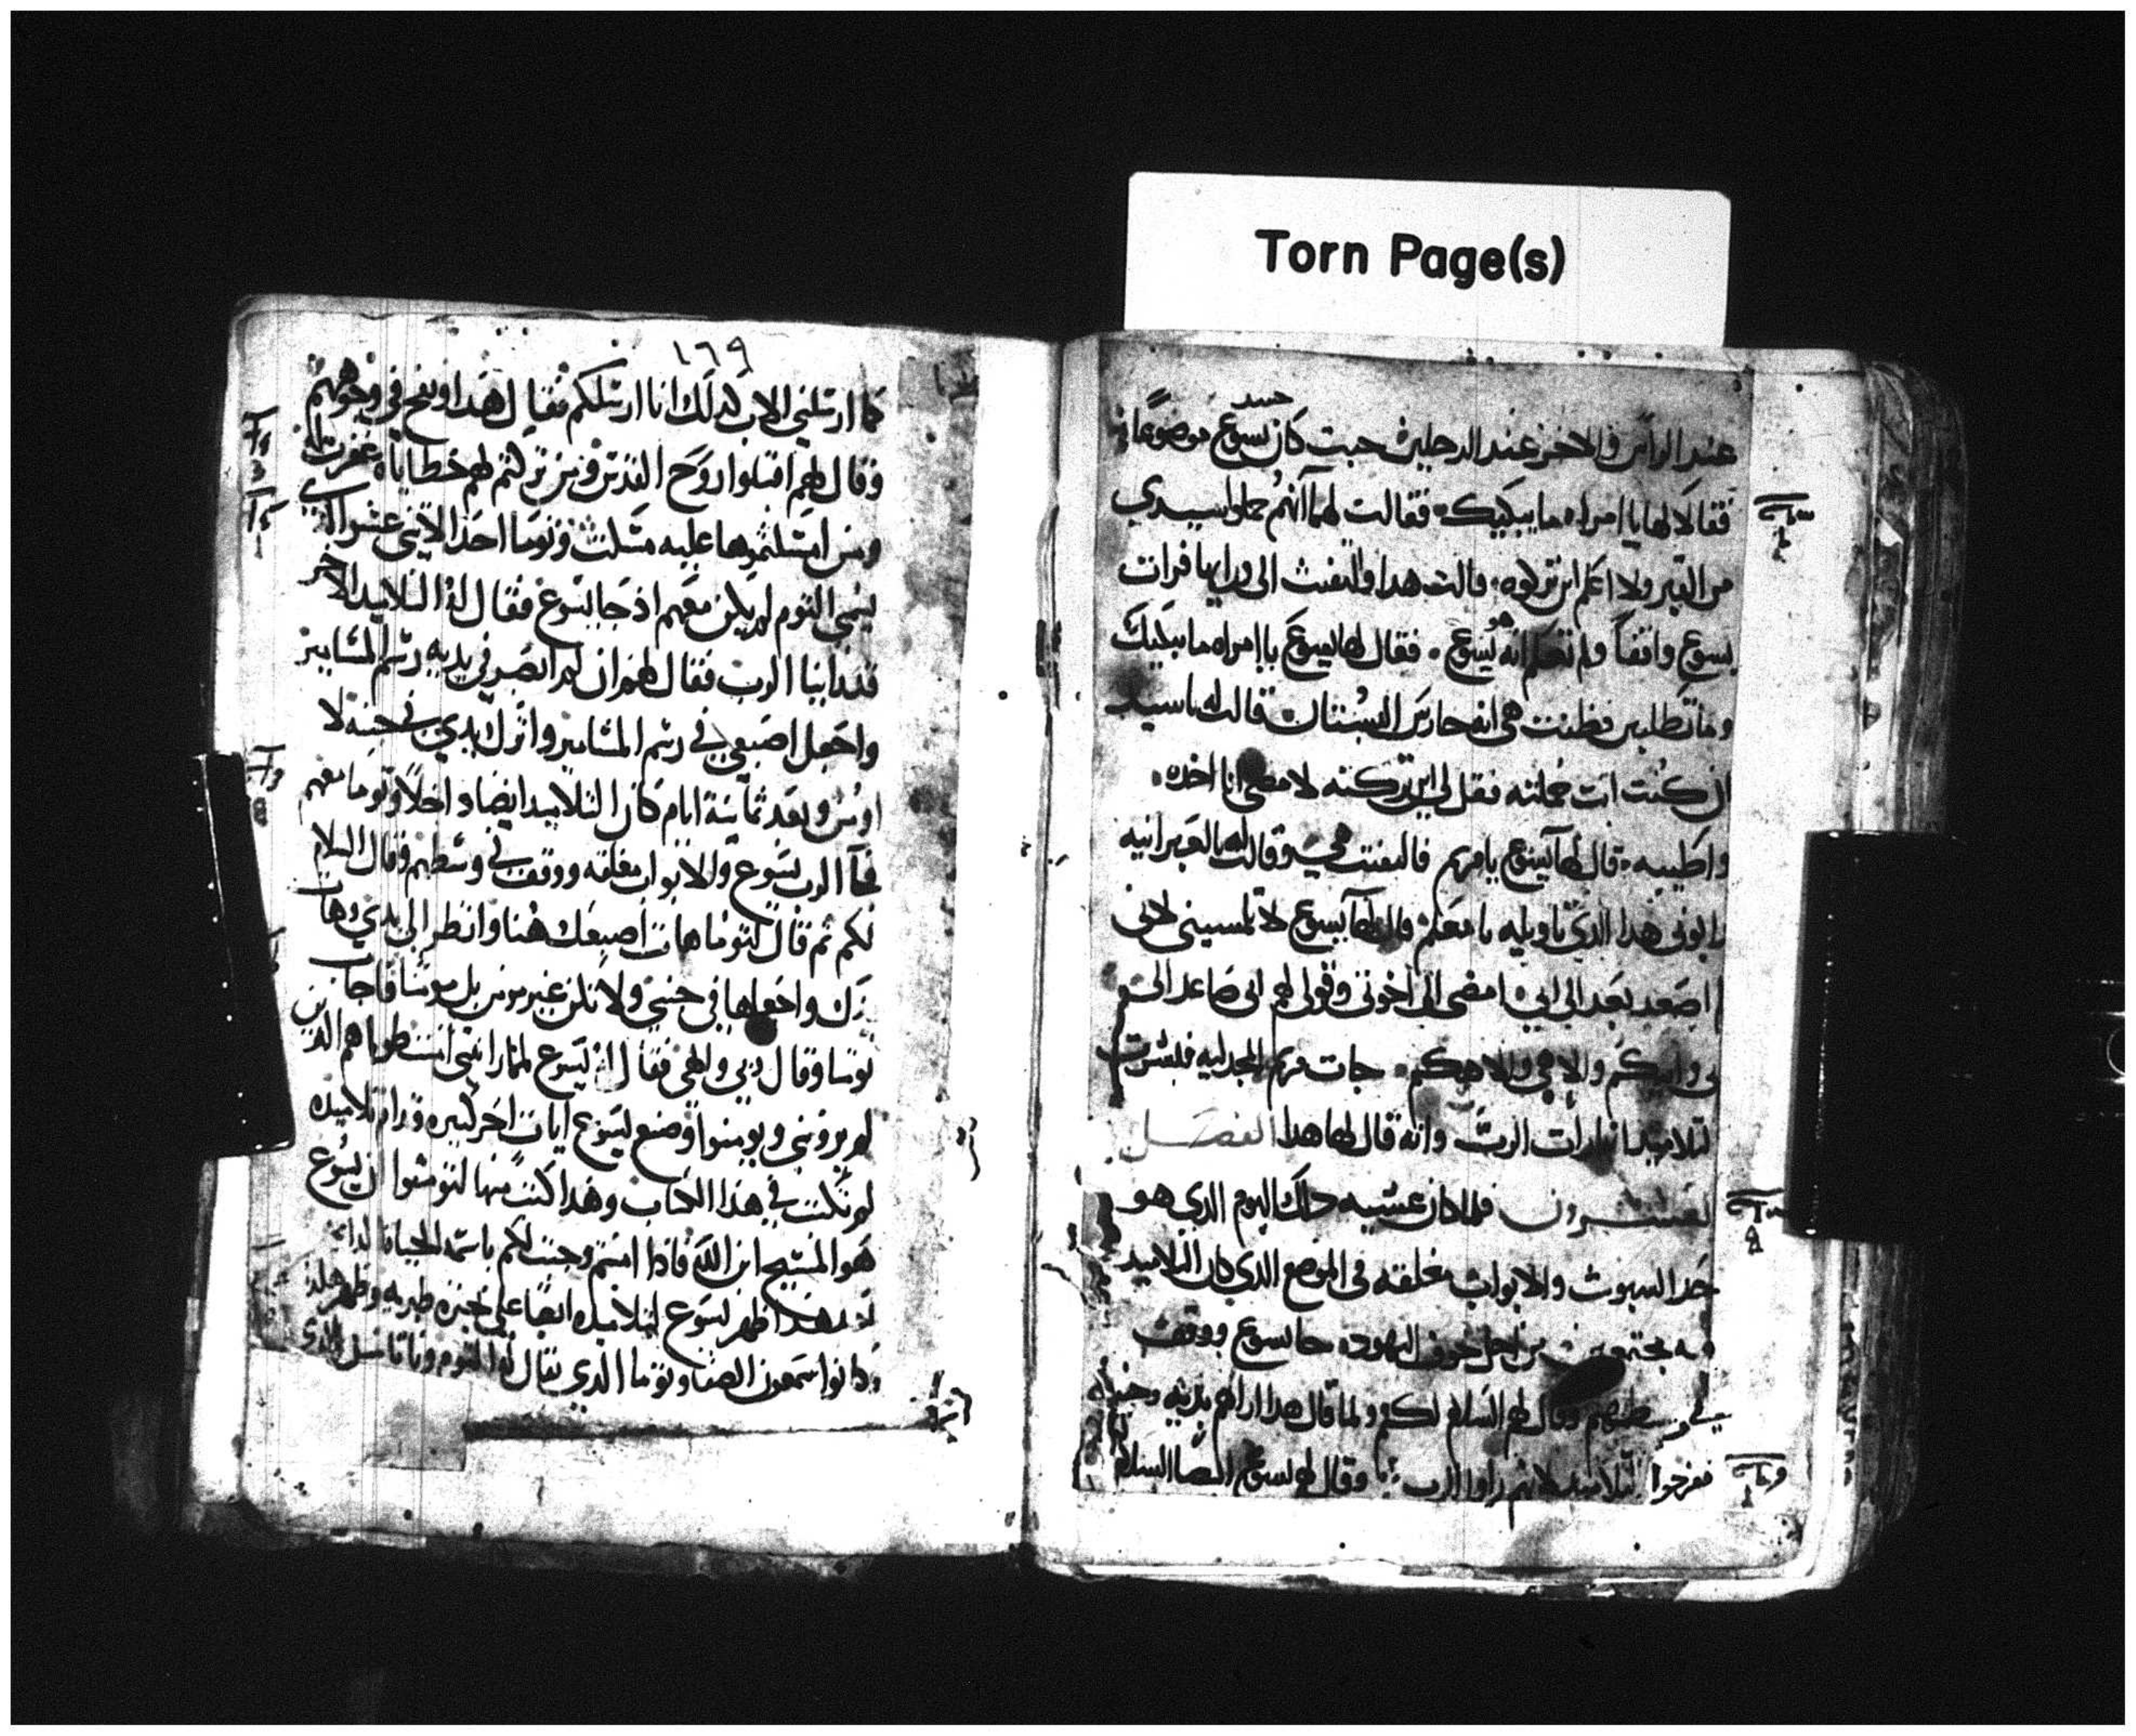 Torn Page(s)
حسد
عند الراس والاخر عند الرجلين حيت كان يسوع موضوعا
فقالا لها يا امراه ما يبكيك فقالت لهما انهم حملوا سيدي
من القبر ولا اعلم اين تركوه قالت هدا والتفتت الى ورايها فرات
يسوع واقفاً ولم تعلم انه هو يسوع فقال لها يسوع يا امراه ما يبكيك
وما تطلبين فظنت هي انه حارس البستان فقالت له يا سيد
ان كنت انت حملته فقل لي اين تركته لامضي انا اخده
واطيبه قال لها يسوع يا مريم فالتفتت هي وقالت له بالعبرانيه
رابوني هدا الدي تاويله يا معلم قال لها يسوع لا تلمسيني لاني
اصعد بعد الى ابي امضى الى اخوتي وقولى لهم اني صاعد الى
ابي وابيكم والاهي والاهكم جات مريم المجدليه فبشرت
التلاميد انها رات الرب وانه قال لها هدا الفصل
العشرون فلما كان عشيه داك اليوم الدي هو
حد السبوت والابواب مغلقه في الموضع الدي كان التلاميد
فيه مجتمعين من اجل خوف اليهود جا يسوع ووقف
في وسطهم وقال لهم السلام لكم ولما قال هدا اراهم يديه وجنبه
ففرحوا التلاميد لانهم راوا الرب وقال لهم يسوع ايضا السلام
١٦٩
كما ارسلني الاب كدلك انا ارسلكم فقال هدا ونفخ في وجوههم
وقال لهم اقبلوا روح القدس فمن تركتم لهم خطاياه غفرت له
ومن امسكتموها عليه مسكت وتوما احد الاتنى عشر الدي
يسمى التوم لم يكن معهم اذ جا يسوع فقال له التلاميد الاخر
قد راينا الرب فقال لهم ان لم ابصر في يديه رسم المسامير
واجعل اصبعي في رسم المسامير واترك يدي في جنبه لا
اومن وبعد ثمانية ايام كان التلاميد ايضا داخلاً وتوما معهم
فجآ الرب يسوع والابواب مغلقه ووقف في وسطهم وقال السلام
لكم ثم قال لتوما هات اصبعك هنا وانظر الى يدي وهات
يدك واجعلها في جنبي ولا تكن غير مومن بل مومنا فاجاب
توما وقال ربي والهي فقال له يسوع لما رايتني امنت طوباهم الدين
لم يروني ويومنوا وصنع يسوع ايات اخر كثيره قدام تلاميده
لم تكتب في هذا الكتاب وهذا كتب منها لتومنوا ان يسوع
هو المسيح ابن الله فاذا امنتم وجبت لكم باسمه الحياه الدايمه
بعد هدا ظهر يسوع لتلاميده ايضا على بحيرة طبريه وظهر هكذا
كانوا سمعون الصفا وتوما الدي يقال له التوم وناتانيل الدي